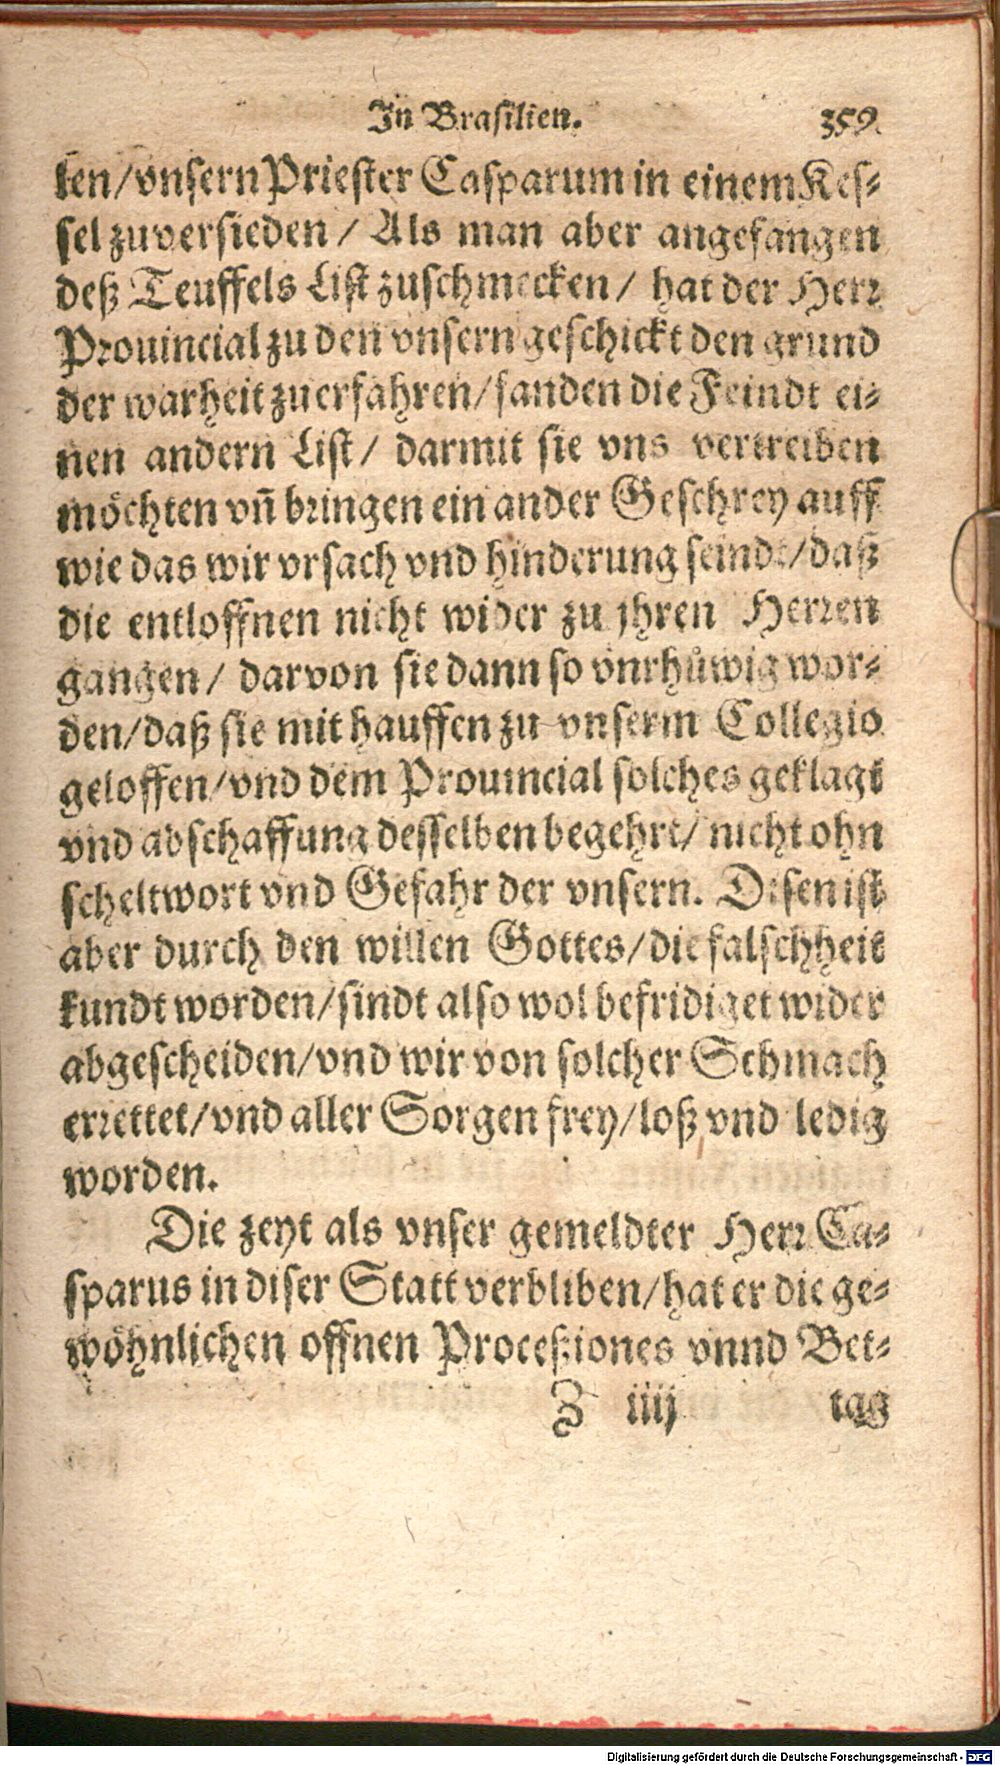 In Brasilien. 359.
ten/vnsern Priester Casparum in einem Kes-
sel zuversieden / Als man aber angefangen
deß Teuffels List zuschmecken / hat der Herr
Prouincial zu den vnsern geschickt den grund
der warheit zu erfahren/fanden die Feindt ei-
nen andern List / darmit sie vns vertreiben
möchten vñ bringen ein ander Geschrey auff
wie das wir vrsach vnd hinderung seindt/daß
die entloffnen nicht wider zu jhren Herren
gangen / darvon sie dann so vnrhůwig wor-
den/daß sie mit hauffen zu vnserm Collegio
geloffen/vnd dem Prouincial solches geklagt
vnd abschaffung desselben begehrt/ nicht ohn
scheltwort vnd Gefahr der vnsern. Disen ist
aber durch den willen Gottes/die falschheit
kundt worden/sindt also wol befridiget wider
abgescheiden/vnd wir von solcher Schmach
errettet/vnd aller Sorgen frey/loß vnd ledig
worden.
Die zeyt als vnser gemeldter Herr Ca-
sparus in diser Statt verbliben/hat er die ge-
wöhnlichen offnen Proceßiones vnnd Bet-
Z iiij tag
Digitalisierung gefördert durch die Deutsche Forschungsgemeinschaft - DFG